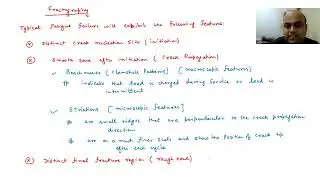 Fractography
Typical Fatigue failure will exhibit the following features:
Distinct crack nucleation site (initiation)
Smooth zone after initiation (Crack Propagation)
✓ Beachmarks (Clamshell Patterns) [macroscopic features]
# indicates that load is changed during service or load is
intermittent
✓ Striations [microscopic features]
# are small ridges that are perpendicular to the crack propagation
direction
# are on a much finer scale and show the position of crack tip
after each cycle
Distinct final fracture region (rough zone)